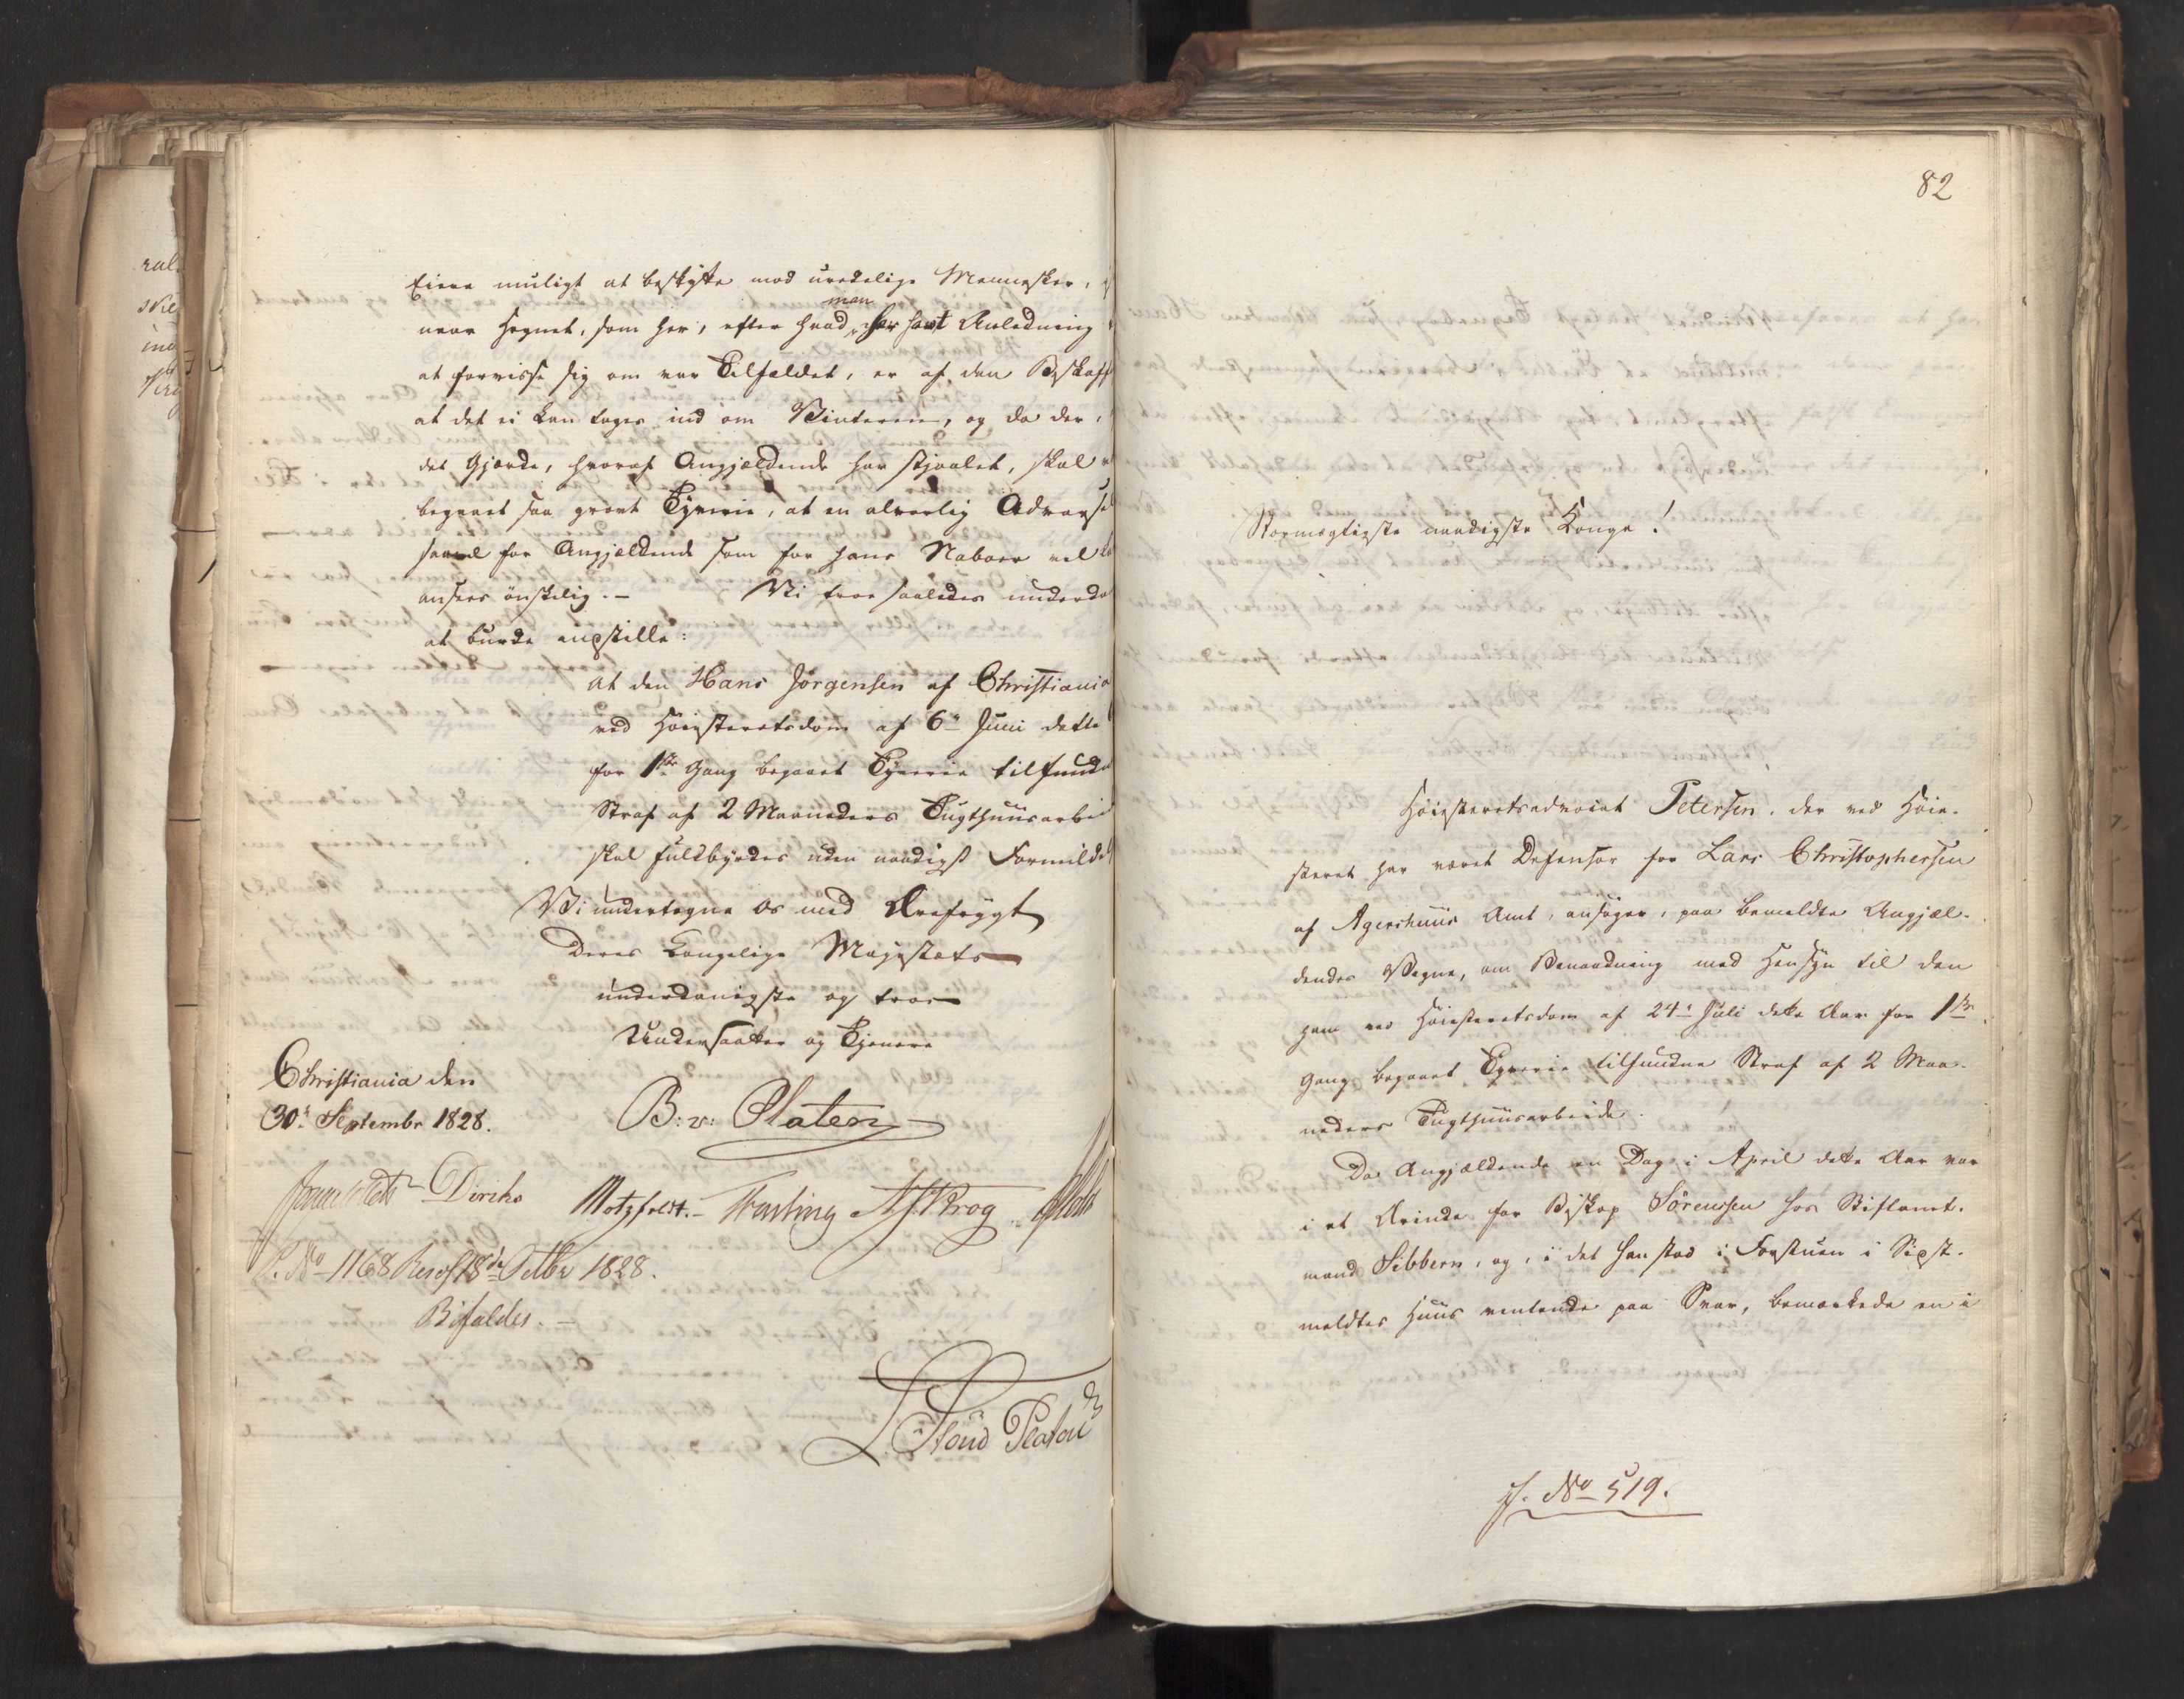 Eiere muligt at beskytte mod uredelige Mennesker,
naar Hegnet, som her, efter hvad man har havt Anledning
at forvisse sig om var Tilfældet, er af den Beskaff
at det ei kan tages ind om Vinteren, og da der
det Gjærde, hvoraf Angjældende har stjaalet, skal
begaaet saa grovt Tyverie, at en alvorlig Advarsel
saavel for Angjældende som for hans Naboer vel
ansees ønskelig. – Vi troe saaledes underda
at burde indstille:
At den Hans Jørgensen af Christiania
ved Høiesteretsdom af 6te Juni dette
for 1ste Gang begaaet Tyverie tilfundne
Straf af 2 Maaneders Tugthuusarbeid
skal fuldbyrdes uden naadigst Formildel
Vi undertegne os med Ærefrygt
Deres Kongelige Majestæts
underdanigste og troe
Undersaatter og Tjenere
Christiania den
30te Septembr 1828.
B: v: Platen
Diriks Motzfeldt. – Fasting Krog
R. No 1168 Resol. 18de Octbr 1828.
Bifaldes. –
82
Stormægtigste naadigste Konge!
Høiesteretsadvocat Petersen, der ved Høie-
steret har været Defensor for Lars Christophersen
af Agershuus Amt, ansøger, paa bemeldte Angjæl-
dendes Vegne, om Benaadning med Hensyn til den
ham ved Høiesteretsdom af 24de Juli dette Aar for 1ste
Gang begaaet Tyverie tilfundne Straf af 2 Maa-
neders Tugthuusarbeide.
Da Angjældende en Dag i April dette Aar var
i et Ærinde for Biskop Sørenssen hos Stiftamt-
mand Sibbern, og, i det han stod i Forstuen i Sidst-
meldtes Huus ventende paa Svar, bemærkede en i
J. No 519.